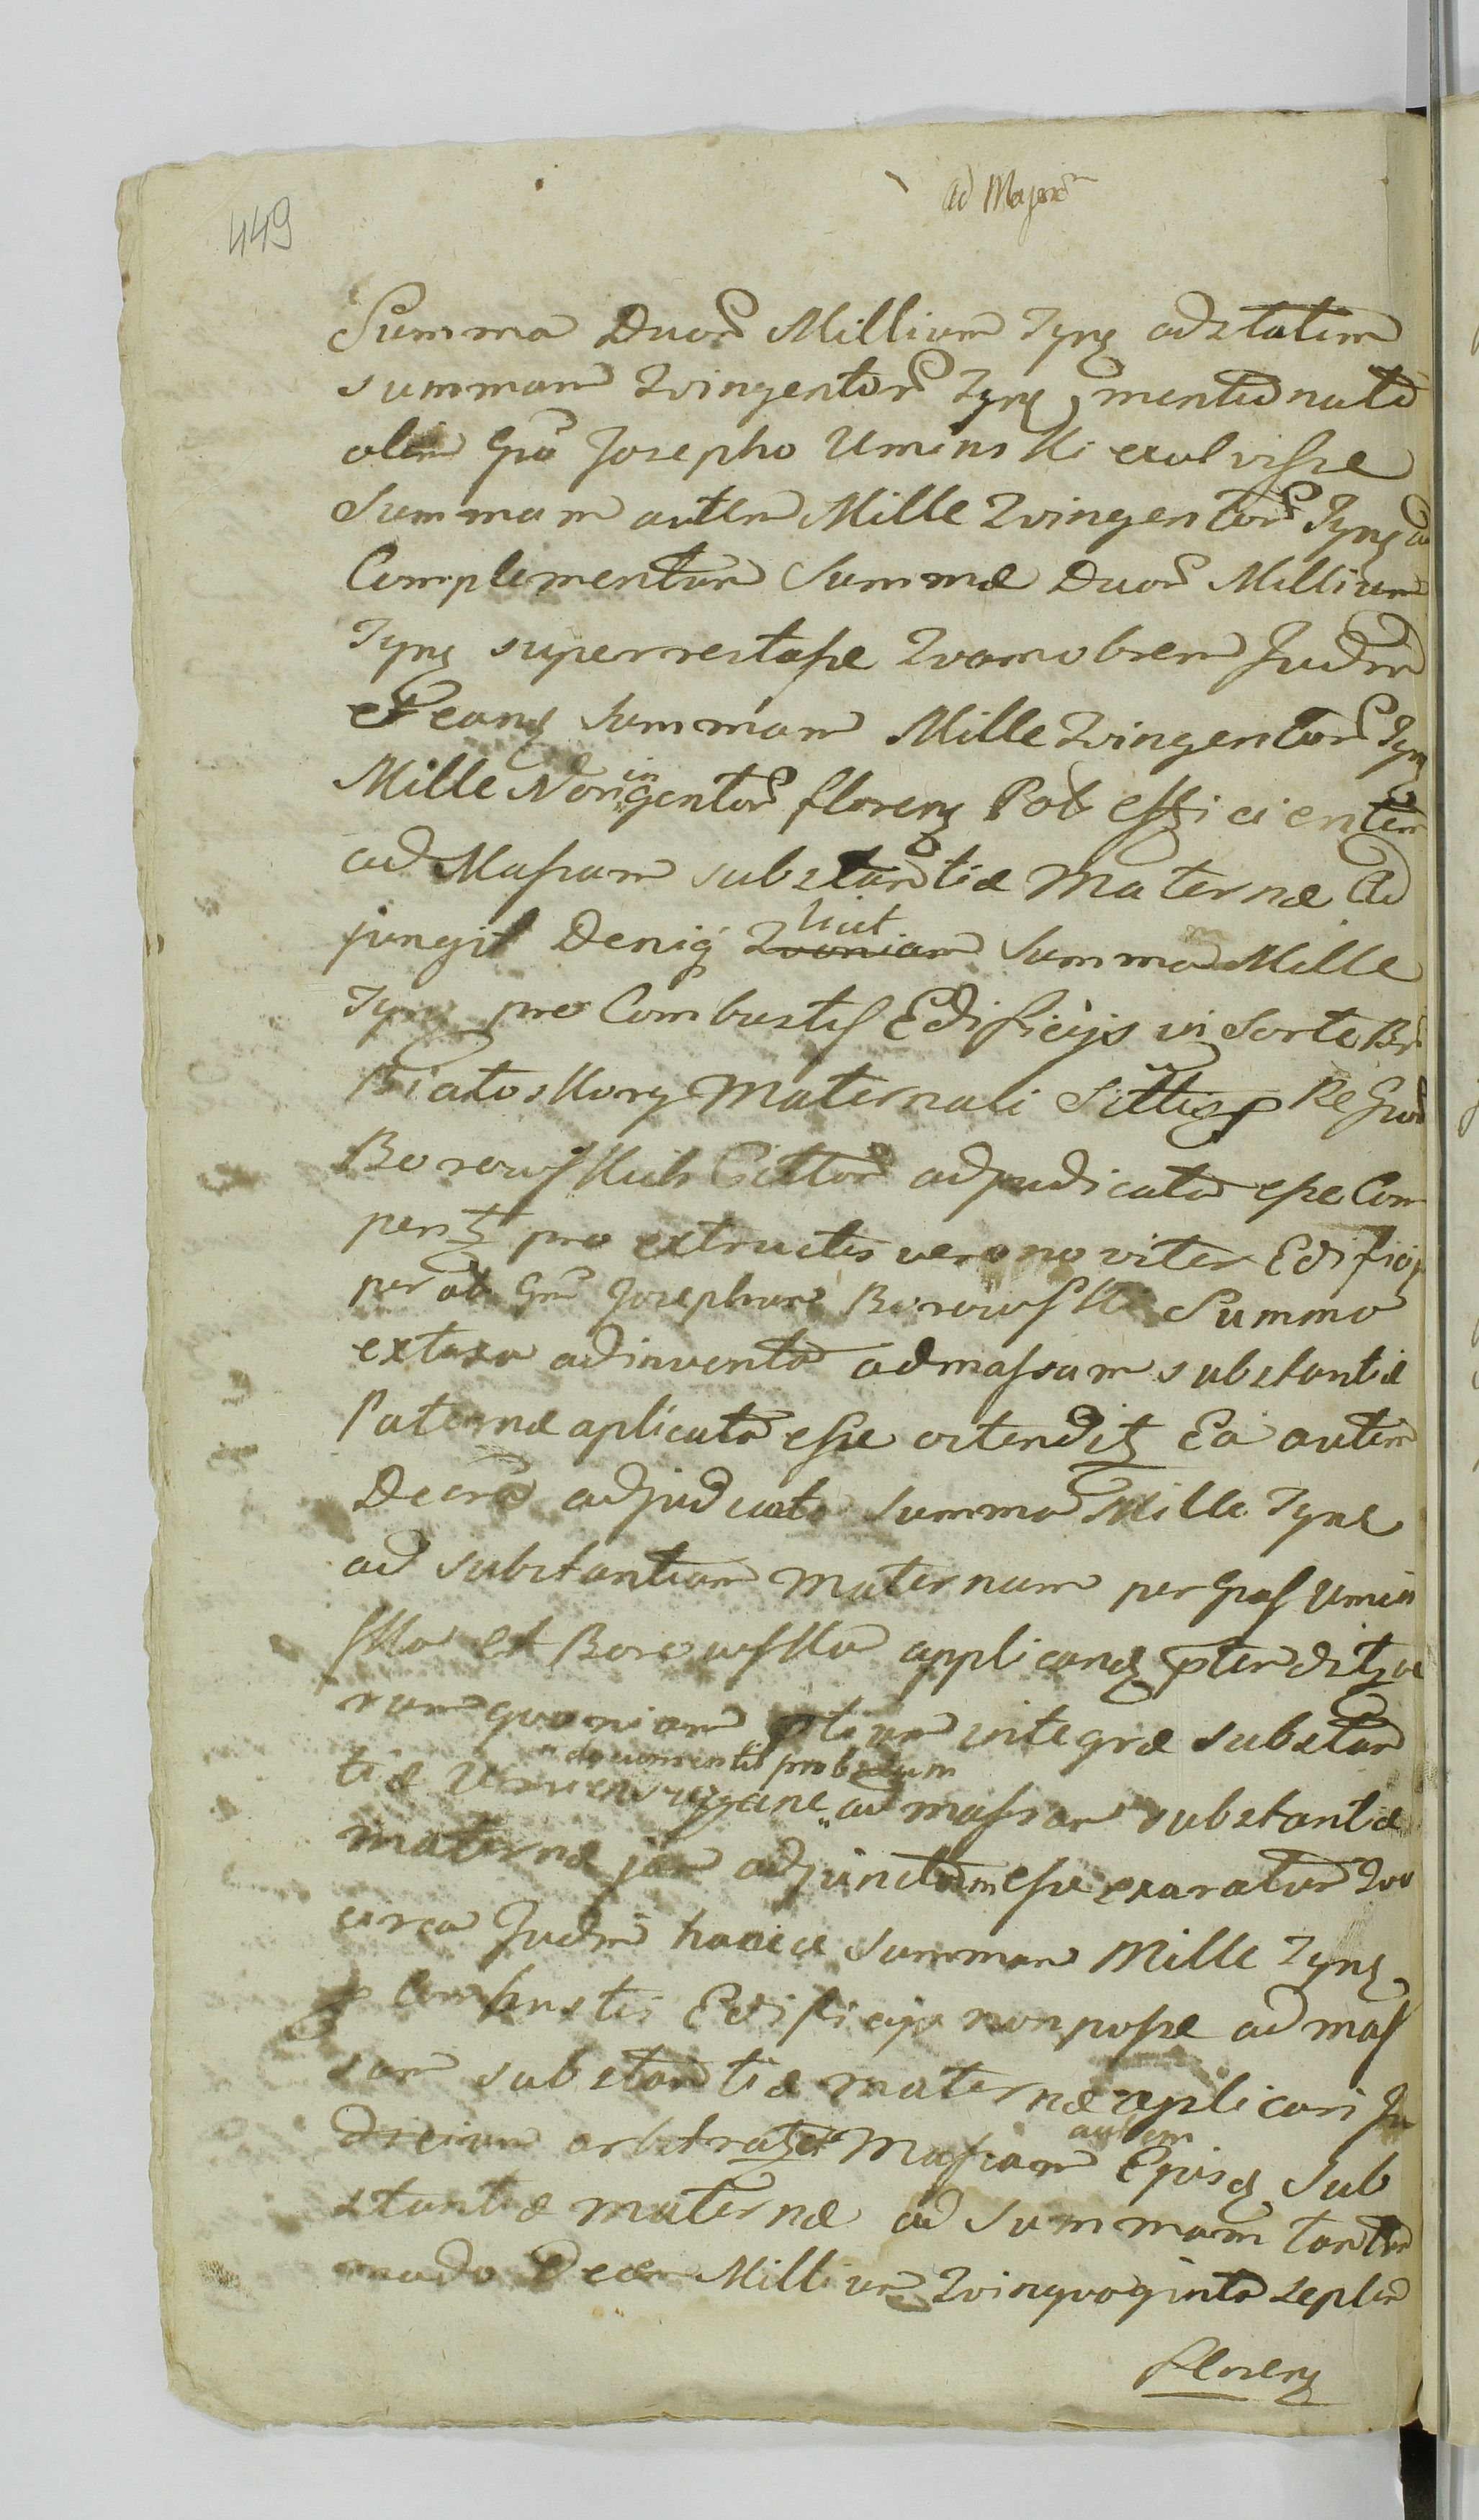 449
ad Major
Summa Duor Millium Tynf ad statim
summam Qvingentor Tynf mentionata
olim Gno Josepho Uminski exolvisse
Summam autem Mille Qvingentor Tynf ad
Complementum Summæ Duor Millium
Tynf superrestasse Qvamobrem Judm
et eand summam Mille Qvingentor Tynf
Mille Noningentor florenz Pol efficientem
ad Massam substantiæ Maternæ Ad
jungit Deniq Qvoniam licet Summa Mille
Tynf pro Combustis Edificijs in Sorte Br
Biatoskory Maternali Sittis p Re Gnod
Borowskich Cittor adjudicata esse Com
perit pro extructis vero noviter Edificijs
per ol Gnm Josephum Borowski Summa
ex taxa adinventa ad massam substantiæ
Paternæ aplicata esse ostendit Ea autem
Decreto adjudicata Summa Mille Tynf
ad substantiam maternam per Gnas Umin
ska et Borowska applicand ptenditur
rum quoniam ptium integræ substan
tiæ documentis probatum ad massam substantiæ
maternæ jam adjunctum esse exaratum Quo
circa Judm hancce summam Mille Tynf
p Combustis Edificijs non posse ad mas
sam substantiæ maternæ aplicari Ju
dicium arbitratur Massam autem Ejusd Sub
stantiæ maternæ ad Summam tantum
modo Decem Millium Qvinqvaginta septem
florenz